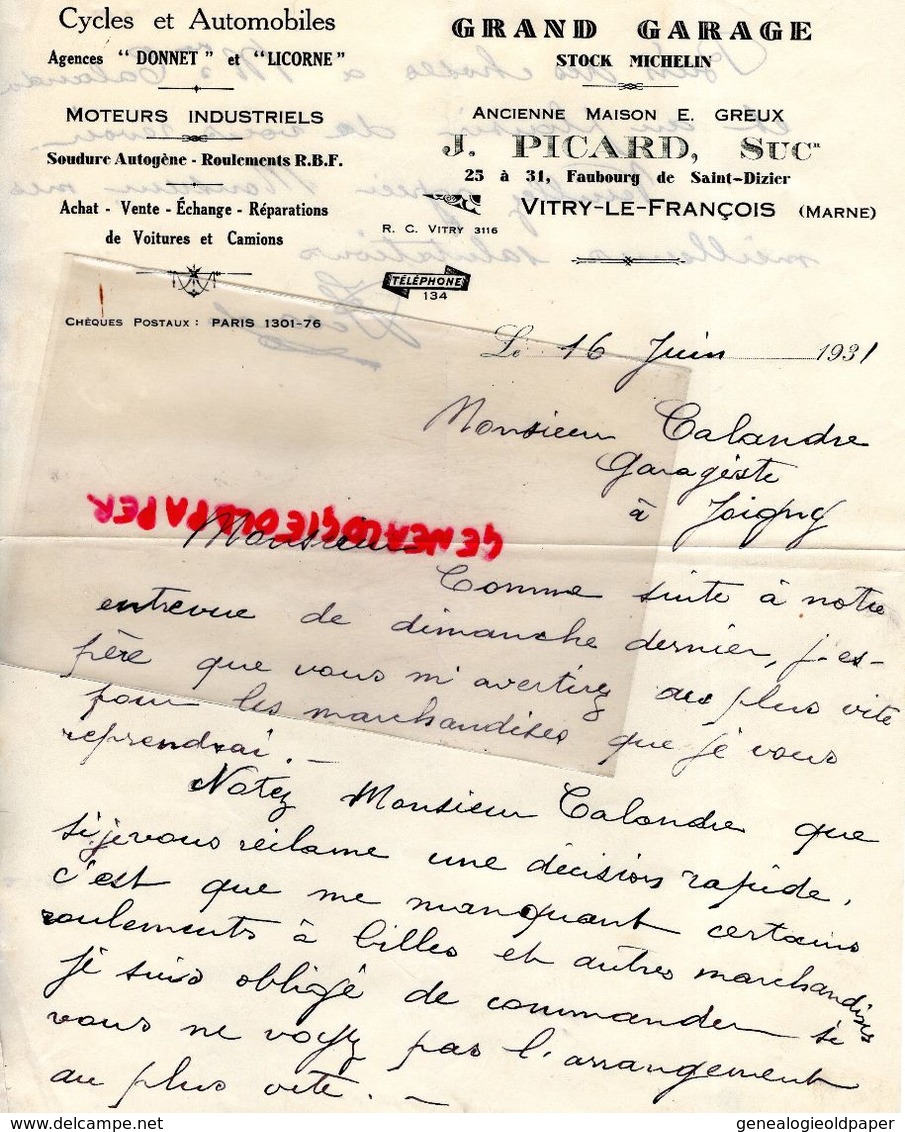 Cycles et Automobiles
Agences “ DONNET ” et “ LICORNE ”
MOTEURS INDUSTRIELS
Soudure Autogène - Roulements R.B.F.
Achat - Vente - Échange - Réparations
de Voitures et Camions
CHÈQUES POSTAUX : PARIS 1301-76
GRAND GARAGE
STOCK MICHELIN
ANCIENNE MAISON E. GREUX
J. PICARD, SUCR
25 à 31, Faubourg de Saint-Dizier
VITRY-LE-FRANÇOIS (MARNE)
R. C. VITRY 3116
TÉLÉPHONE
134
Le 16 Juin 1931
Monsieur Calandre
Garagiste
à Joigny
GENEALOGIEOLDPAPER
Monsieur
Comme suite à notre
entrevue de dimanche dernier, j'es-
père que vous m'avertirez au plus vite
pour les marchandises que je vous
reprendrai. -
Notez Monsieur Calandre que
si je vous réclame une décision rapide,
c'est que me manquant certains
roulements à billes et autres marchandises
je suis obligé de commander si
vous ne voyez pas l'arrangement
au plus vite. -
genealogieoldpaper